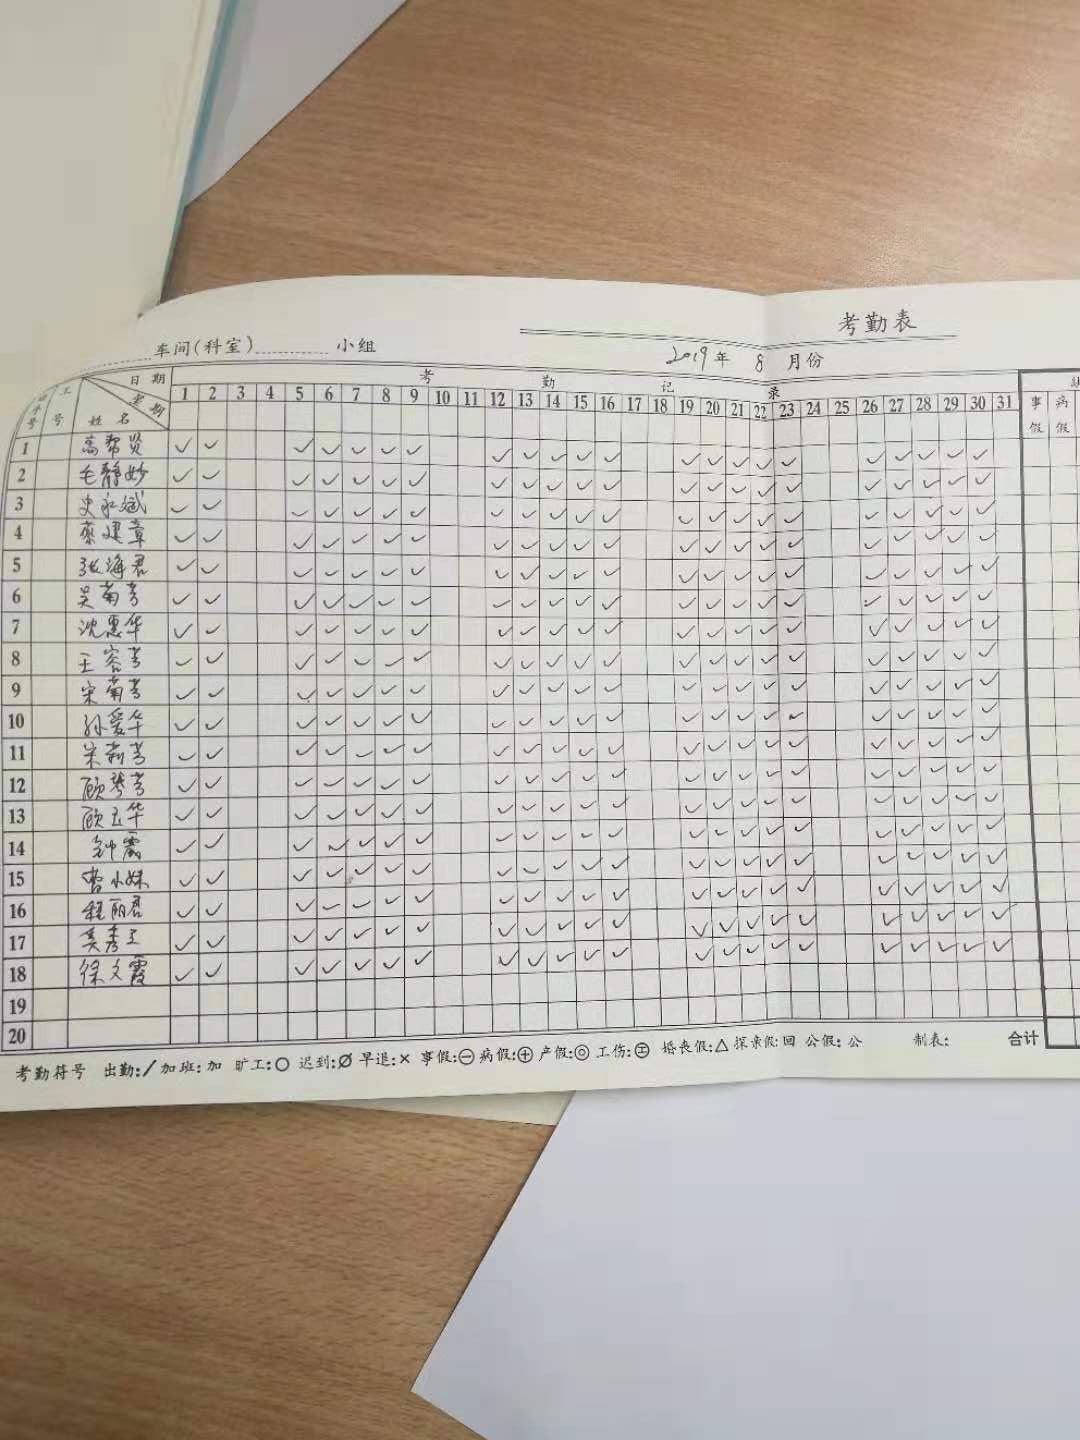 考勤表
车间(科室) 小组 2019年 8月份
工号 日期 星期 姓名 考勤记录
1 2 3 4 5 6 7 8 9 10 11 12 13 14 15 16 17 18 19 20 21 22 23 24 25 26 27 28 29 30 31 事假 病假
1 高帮贤 ✓ ✓ ✓ ✓ ✓ ✓ ✓ ✓ ✓ ✓ ✓ ✓ ✓ ✓ ✓ ✓ ✓ ✓ ✓ ✓ ✓ ✓
2 毛静妙 ✓ ✓ ✓ ✓ ✓ ✓ ✓ ✓ ✓ ✓ ✓ ✓ ✓ ✓ ✓ ✓ ✓ ✓ ✓ ✓ ✓ ✓
3 史永斌 ✓ ✓ ✓ ✓ ✓ ✓ ✓ ✓ ✓ ✓ ✓ ✓ ✓ ✓ ✓ ✓ ✓ ✓ ✓ ✓ ✓ ✓
4 蔡建章 ✓ ✓ ✓ ✓ ✓ ✓ ✓ ✓ ✓ ✓ ✓ ✓ ✓ ✓ ✓ ✓ ✓ ✓ ✓ ✓ ✓ ✓
5 张海君 ✓ ✓ ✓ ✓ ✓ ✓ ✓ ✓ ✓ ✓ ✓ ✓ ✓ ✓ ✓ ✓ ✓ ✓ ✓ ✓ ✓ ✓
6 吴菊芳 ✓ ✓ ✓ ✓ ✓ ✓ ✓ ✓ ✓ ✓ ✓ ✓ ✓ ✓ ✓ ✓ ✓ ✓ ✓ ✓ ✓ ✓
7 沈惠华 ✓ ✓ ✓ ✓ ✓ ✓ ✓ ✓ ✓ ✓ ✓ ✓ ✓ ✓ ✓ ✓ ✓ ✓ ✓ ✓ ✓ ✓
8 王容芳 ✓ ✓ ✓ ✓ ✓ ✓ ✓ ✓ ✓ ✓ ✓ ✓ ✓ ✓ ✓ ✓ ✓ ✓ ✓ ✓ ✓ ✓
9 宋菊芳 ✓ ✓ ✓ ✓ ✓ ✓ ✓ ✓ ✓ ✓ ✓ ✓ ✓ ✓ ✓ ✓ ✓ ✓ ✓ ✓ ✓ ✓
10 孙爱华 ✓ ✓ ✓ ✓ ✓ ✓ ✓ ✓ ✓ ✓ ✓ ✓ ✓ ✓ ✓ ✓ ✓ ✓ ✓ ✓ ✓ ✓
11 朱莉芳 ✓ ✓ ✓ ✓ ✓ ✓ ✓ ✓ ✓ ✓ ✓ ✓ ✓ ✓ ✓ ✓ ✓ ✓ ✓ ✓ ✓ ✓
12 顾琴芳 ✓ ✓ ✓ ✓ ✓ ✓ ✓ ✓ ✓ ✓ ✓ ✓ ✓ ✓ ✓ ✓ ✓ ✓ ✓ ✓ ✓ ✓
13 顾玉华 ✓ ✓ ✓ ✓ ✓ ✓ ✓ ✓ ✓ ✓ ✓ ✓ ✓ ✓ ✓ ✓ ✓ ✓ ✓ ✓ ✓ ✓
14 钟霞 ✓ ✓ ✓ ✓ ✓ ✓ ✓ ✓ ✓ ✓ ✓ ✓ ✓ ✓ ✓ ✓ ✓ ✓ ✓ ✓ ✓ ✓
15 曹小妹 ✓ ✓ ✓ ✓ ✓ ✓ ✓ ✓ ✓ ✓ ✓ ✓ ✓ ✓ ✓ ✓ ✓ ✓ ✓ ✓ ✓ ✓
16 程丽君 ✓ ✓ ✓ ✓ ✓ ✓ ✓ ✓ ✓ ✓ ✓ ✓ ✓ ✓ ✓ ✓ ✓ ✓ ✓ ✓ ✓ ✓
17 吴秀玉 ✓ ✓ ✓ ✓ ✓ ✓ ✓ ✓ ✓ ✓ ✓ ✓ ✓ ✓ ✓ ✓ ✓ ✓ ✓ ✓ ✓ ✓
18 徐文霞 ✓ ✓ ✓ ✓ ✓ ✓ ✓ ✓ ✓ ✓ ✓ ✓ ✓ ✓ ✓ ✓ ✓ ✓ ✓ ✓ ✓ ✓
19
20
考勤符号 出勤:/ 加班:加 旷工:○ 迟到:Ø 早退:× 事假:⊖ 病假:⊕ 产假:◎ 工伤:㊣ 婚丧假:△ 探亲假:回 公假:公 制表: 合计